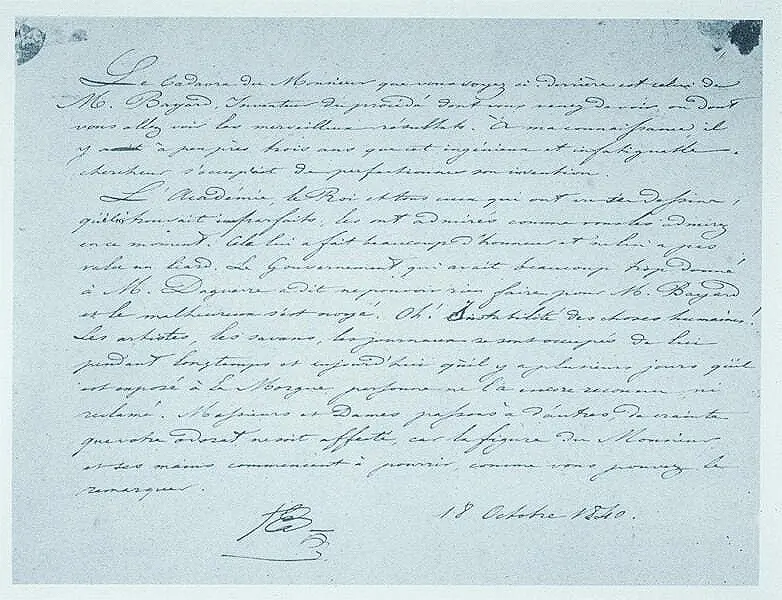 Le Cadavre du Monsieur que vous voyez ci-derrière est celui de
M. Bayard, Inventeur du procédé dont vous venez de voir, ou dont
vous allez voir les merveilleux résultats. À ma connaissance, il
y a à peu près trois ans que cet ingénieux et infatiguable
chercheur s'occupait de perfectionner son invention.
L'Académie, le Roi et tous ceux qui ont vu ses dessins,
que lui trouvait imparfaits, les ont admirés comme vous les admirez
en ce moment. Cela lui a fait beaucoup d'honneur et ne lui a pas
valu un liard. Le Gouvernement, qui avait beaucoup trop donné
à M. Daguerre a dit ne pouvoir rien faire pour M. Bayard
et le malheureux s'est noyé. Oh! Instabilité des choses humaines!
Les artistes, les savans, les journaux se sont occupés de lui
pendant longtemps et aujourd'hui qu'il y a plusieurs jours qu'il
est exposé à la Morgue personne ne l'a encore reconnu, ni
réclamé. Messieurs et Dames, passons à d'autres, de crainte
que votre odorat ne soit affecté, car la figure du Monsieur
et ses mains commencent à pourrir, comme vous pouvez le
remarquer.
HB
18 Octobre 1840.